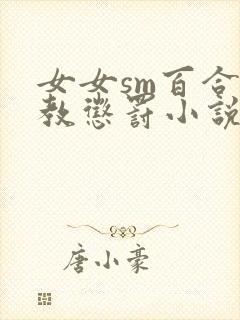 女女sm百合
教懲罚小説
唐小豪